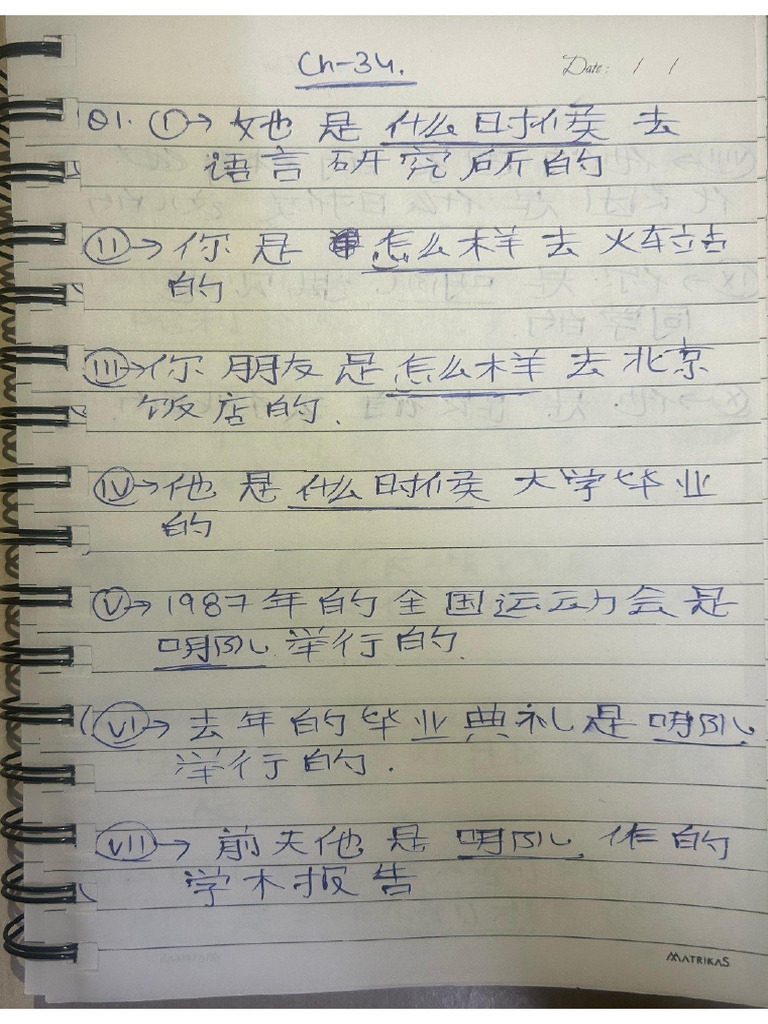 Ch-34.
Date: / /
Q1. (I)→ 她 是 什么时候 去
语言研究所的
(II)→ 你 是 怎么样 去 火车站
的
(III)→你 朋友 是 怎么样 去 北京
饭店的.
(IV)→他 是 什么时候 大学毕业
的
(V)→ 1987年的全国运动会是
哪儿 举行的.
(VI)→ 去年的毕业典礼是 哪儿
举行的.
(VII)→ 前天他是 哪儿 作的
学术报告
MATRIKAS